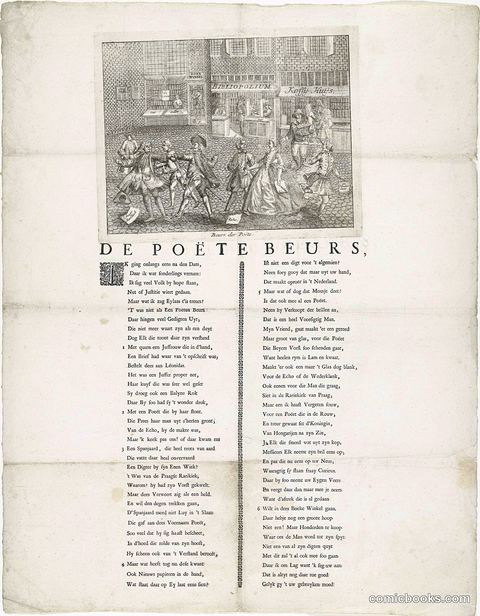 BIBLIOPOLIUM
Koffy Huis
Beurs der Poëte
DE POËTE BEURS,
IK ging onlangs eens na den Dam,
Daar ik wat sonderlings vernam:
Ik sag veel Volk by hope staan,
Net of Justitie wiert gedaan.
Maar wat ik zag Eylaas
'T was niet als Een Poeten Beurs
Daar hingen veel Gedigten Uyt,
Die niet meer waart zyn als een duyt
Dog Elk die toont daar zyn verstand
1 Met quam een Juffrouw die in d'hand,
Een Brief had waar van 't opschrift was,
Bestelt dees aan Leonidas.
Het was een Juffer proper net,
Haar kuyf die was seer wel geset
Sy droeg ook een Salyne Rok
Daar By soo had sy 't wonder drok,
2 Met een Poët die by haar stont.
Die Prees haar man uyt s'herten gront;
Van de Echo, hy de makte was,
Maar 'k keek pas om! of daar kwam ras
3 Een Spanjaard, die heel trots van aard
Die vatte daar heel onvervaard
Een Digter by syn Enen Wiek?
't Was van de Praagse Rariekiek,
Waarom? hy had zyn Vorst gekwelt.
Maar dees Verweert zig als een held.
En wil den degen trekken gaan,
D'Spanjaard meed niet Luy in 't Slaan
Die gaf aan dees Voornaam Poëet,
Soo veel dat hy sig haast bescheet,
In d'hoed die rolde van zyn hooft,
Hy scheen ook van 't Verstand berooft,
4 Maar wat heeft tog na desen kwant
Ook Nieuwe papieren in de hand,
Wat staat daar op Ey laat eens sien?
Ist niet een digt voor 't algemien?
Neen foey gooy dat maar uyt uw hand,
Dat maakt oproer in 't Nederland.
5 Maar wat of dog dat Mootje deet?
Is dat ook mee al een Poëet.
Neen hy Verkoopt der brillen an,
Dat is een heel Voorsigtig Man.
Myn Vriend, gaat maakt 'er een gereed
Maar groot van glas, voor die Poëet
Die Beyert Vorst soo schenden gaat,
Want heelen rym is Lam en kwaat.
Maakt 'er ook een maar 't Glas dog blank,
Voor de Echo of de Wederklank,
Ook eenen voor die Man die graag,
Siet in de Rariekiek van Praag,
Maar een ik haast Vergeten souw,
Voor een Poëet die in de Rouw,
En treur gewaat set d'Koningin,
Van Hongarijen na zyn Zin,
Ja, Elk die smeed wat uyt zyn kop,
Messieurs Elk neeme zyn bril eens op,
En pas die nu eens op uw Neus,
Waaragtig sy staan fraay Curieus.
Daar by soo neemt uw Eygen Veers
En veegt daar dan maar mee je neers
Want d'afrek die is al gedaan
6 Wilt in dees Boeke Winkel gaan.
Daar hebje nog een groote hoop
Niet een! Maar Hondorden te koop
Waar om de Man word tot zyn spyt
Niet een van al zyn digten quyt
Met dit zal 't al ook met soo gaan
Daar ik om Lag want 'k seg uw aan
Dat is altyt nog daar toe goed
Gelyk gy 't uw gebruyken moed!
comicbooks.com